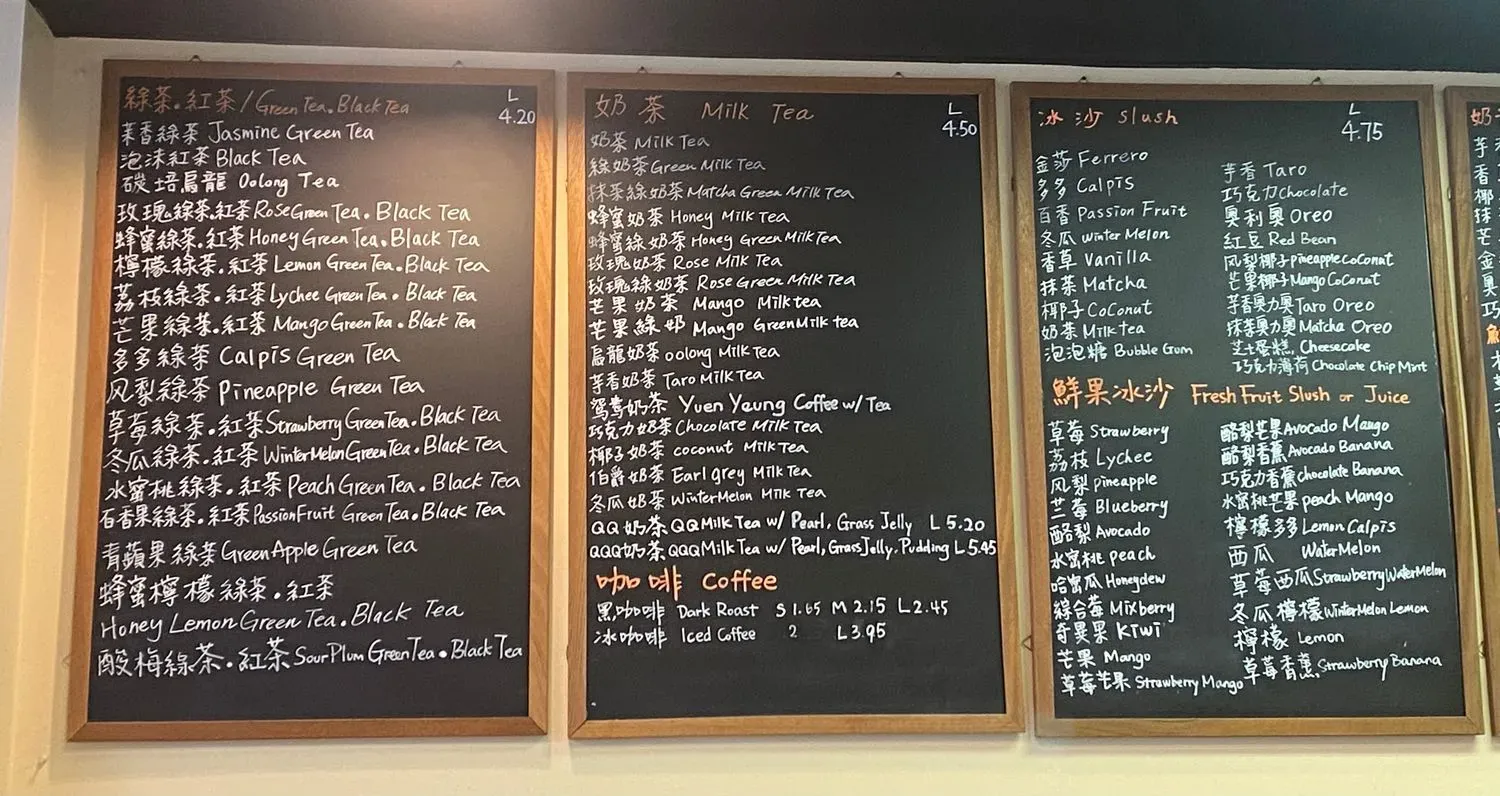 綠茶.紅茶/Green Tea.Black Tea L 4.20
茉香綠茶 Jasmine Green Tea
泡沫紅茶 Black Tea
碳培烏龍 Oolong Tea
玫瑰綠茶.紅茶 Rose Green Tea.Black Tea
蜂蜜綠茶.紅茶 Honey Green Tea.Black Tea
檸檬綠茶.紅茶 Lemon Green Tea.Black Tea
荔枝綠茶.紅茶 Lychee Green Tea.Black Tea
芒果綠茶.紅茶 Mango Green Tea.Black Tea
多多綠茶 Calpis Green Tea
风梨綠茶 Pineapple Green Tea
草莓綠茶.紅茶 Strawberry Green Tea.Black Tea
冬瓜綠茶.紅茶 Winter Melon Green Tea.Black Tea
水蜜桃綠茶.紅茶 Peach Green Tea.Black Tea
石香果綠茶.紅茶 Passion Fruit Green Tea.Black Tea
青蘋果綠茶 Green Apple Green Tea
蜂蜜檸檬綠茶.紅茶
Honey Lemon Green Tea.Black Tea
酸梅綠茶.紅茶 Sour Plum Green Tea.Black Tea
奶茶 Milk Tea L 4.50
奶茶 Milk Tea
綠奶茶 Green Milk Tea
抹茶綠奶茶 Matcha Green Milk Tea
蜂蜜奶茶 Honey Milk Tea
蜂蜜綠奶茶 Honey Green Milk Tea
玫瑰奶茶 Rose Milk Tea
玫瑰綠奶茶 Rose Green Milk Tea
芒果奶茶 Mango Milk tea
芒果綠奶 Mango Green Milk tea
烏龍奶茶 oolong Milk Tea
芋香奶茶 Taro Milk Tea
鴛鴦奶茶 Yuen Yeung Coffee w/ Tea
巧克力奶茶 Chocolate Milk Tea
椰子奶茶 coconut Milk Tea
伯爵奶茶 Earl grey Milk Tea
冬瓜奶茶 Winter Melon Milk Tea
QQ奶茶 QQ Milk Tea w/ Pearl, Grass Jelly L 5.20
QQQ奶茶 QQQ Milk Tea w/ Pearl, Grass Jelly, Pudding L 5.45
咖啡 Coffee
黑咖啡 Dark Roast S 1.65 M 2.15 L 2.45
冰咖啡 Iced Coffee 2 L 3.95
冰沙 Slush L 4.75
金莎 Ferrero
多多 Calpis
百香 Passion Fruit
冬瓜 Winter Melon
香草 Vanilla
抹茶 Matcha
椰子 Coconut
奶茶 Milk tea
泡泡糖 Bubble Gum
芋香 Taro
巧克力 Chocolate
奧利奧 Oreo
紅豆 Red Bean
风梨椰子 Pineapple Coconut
芒果椰子 Mango Coconut
芋香奧力奧 Taro Oreo
抹茶奧力奧 Matcha Oreo
芝士蛋糕 Cheesecake
巧克力薄荷 Chocolate Chip Mint
鮮果冰沙 Fresh Fruit Slush or Juice
草莓 Strawberry
荔枝 Lychee
风梨 pineapple
兰莓 Blueberry
酪梨 Avocado
水密桃 peach
哈密瓜 Honeydew
綜合莓 Mixberry
奇異果 Kiwi
芒果 Mango
草莓芒果 Strawberry Mango
酪梨芒果 Avocado Mango
酪梨香蕉 Avocado Banana
巧克力香蕉 chocolate Banana
水密桃芒果 peach Mango
檸檬多多 Lemon Calpis
西瓜 Water Melon
草莓西瓜 Strawberry Water Melon
冬瓜檸檬 Winter Melon Lemon
檸檬 Lemon
草莓香蕉 Strawberry Banana